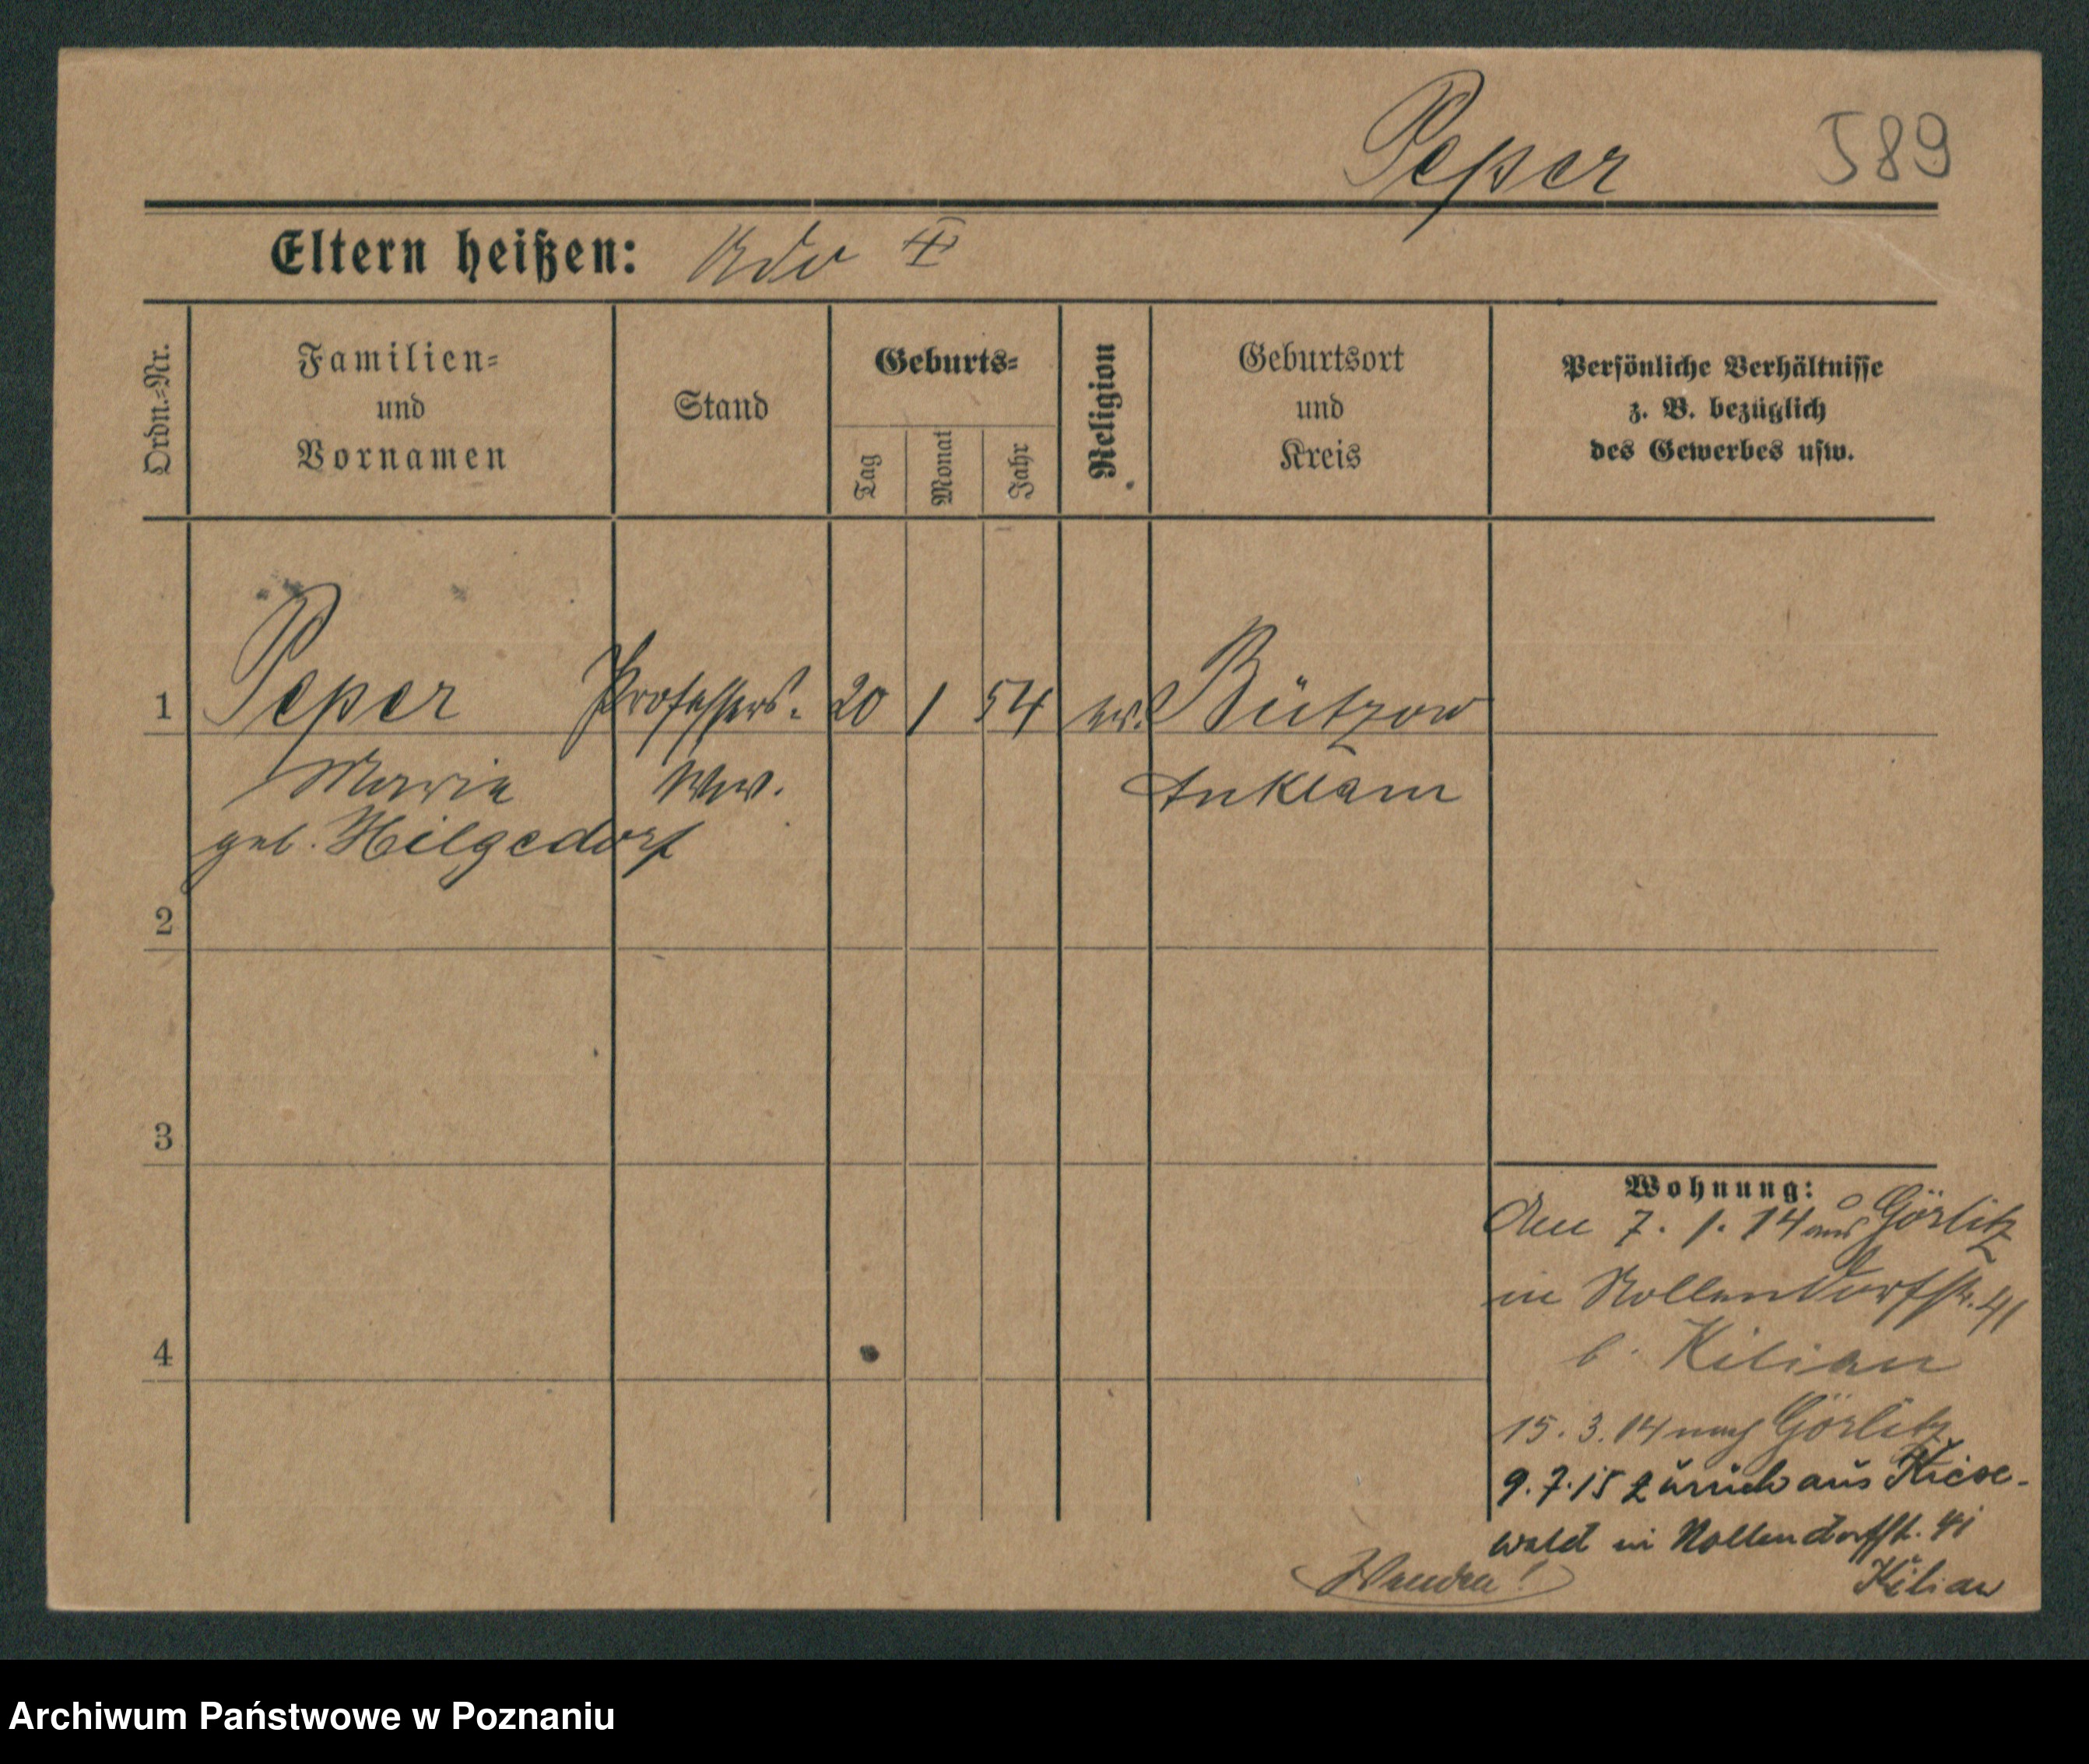 Peper 589
Eltern heißen: Udo
Ordn.-Nr.
Familien-
und
Vornamen
Stand
Geburts-
Tag
Monat
Jahr
Religion
Geburtsort
und
Kreis
Persönliche Verhältnisse
z. B. bezüglich
des Gewerbes usw.
1 Peper Professors- 20 1 54 ev. Bützow
Marie Ww. Anklam
geb. Hilgedorf
2
3
4
Wohnung:
den 7. 1. 14 aus Görlitz
in Nollendorfstr. 41
b. Kilian
15. 3. 14 nach Görlitz
9. 7. 15 zurück aus Kiese-
wald in Nollendorfstr. 41
Kilian
Wenden!
Archiwum Państwowe w Poznaniu